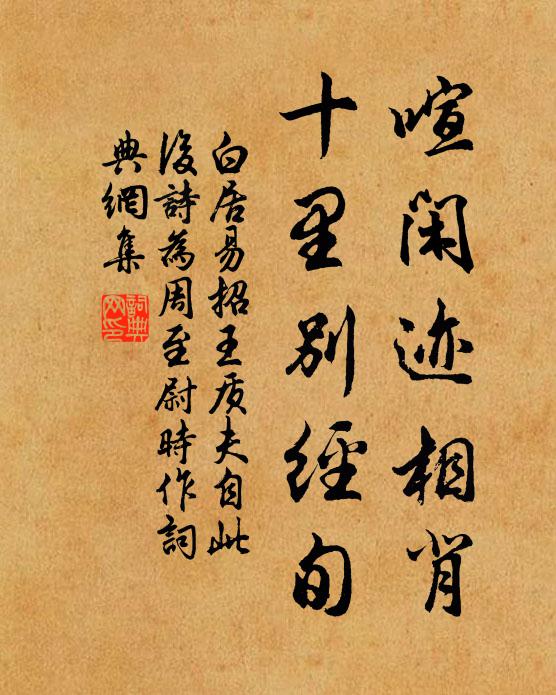 喧閑迹相背
十里别經旬
白居易招王质夫自此
後詩為周至尉時作詞
典網集
詞典网印